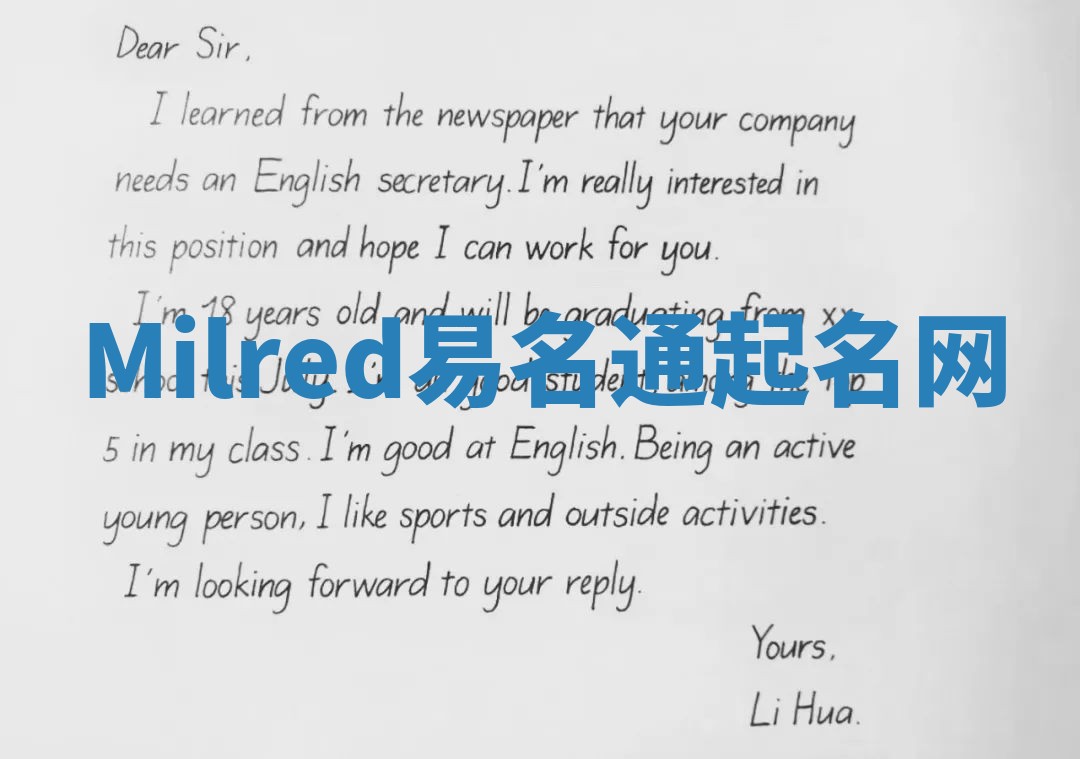 Dear Sir,
I learned from the newspaper that your company
needs an English secretary. I'm really interested in
this position and hope I can work for you.
I'm 18 years old and will be graduating from xx
Milred易名通起名网
school this July. I'm a good student, among the top
5 in my class. I'm good at English. Being an active
young person, I like sports and outside activities.
I'm looking forward to your reply.
Yours,
Li Hua.